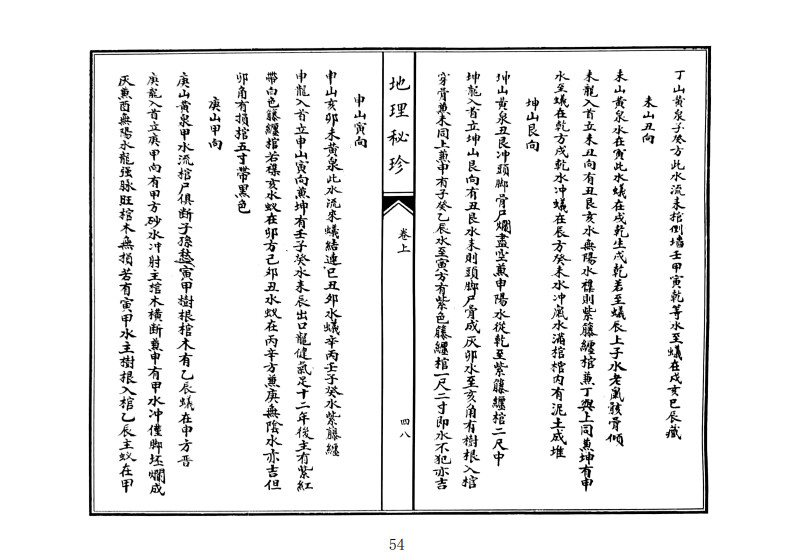 丁山黃泉子癸方此水流來棺倒墻壬甲寅乾等水至蟻在戌亥巳辰藏
未山丑向
未山黃泉水在寅此水蟻在戌乾生戌乾若至蟻辰上子水老鼠骸骨傾
未龍入首立未丑向有丑艮亥水無陽水襍則紫藤纏棺兼丁與上同兼坤有甲
水至蟻在乾方戌乾水冲蟻在辰方癸未水冲鼠水滿棺棺內有泥土成堆
坤山艮向
坤山黃泉丑艮冲頭脚骨尸爛盡空兼申陽水從乾至紫藤纏棺二尺中
坤龍入首立坤山艮向有丑艮水來則頭脚尸骨成灰卯水至亥角有樹根入棺
穿骨兼未同上兼申有子癸乙辰水至寅方有紫色藤纏棺一尺二寸即水不犯亦吉
地理秘珍
卷上
四八
申山寅向
申山亥卯未黃泉此水流來蟻結連巳丑卯水蟻辛丙壬子癸水紫藤纏
申龍入首立申山寅向兼坤有壬子癸水來辰出口龍健氣足十二年後主有紫紅
帶白色藤纏棺若襍亥水蚁在卯方己卯丑水蚁在丙辛方兼庚無陰水亦吉但
卯角有損棺五寸帶黑色
庚山甲向
庚山黃泉甲水流棺尸俱斷子孫愁寅甲樹根棺木有乙辰蟻在申方晋
庚龍入首立庚甲向有甲方砂水冲肘主棺木橫斷兼申有甲水冲僅脚坯爛成
灰兼酉無陽水龍强脉旺棺木無損若有寅甲水主樹根入棺乙辰主蚁在甲
54